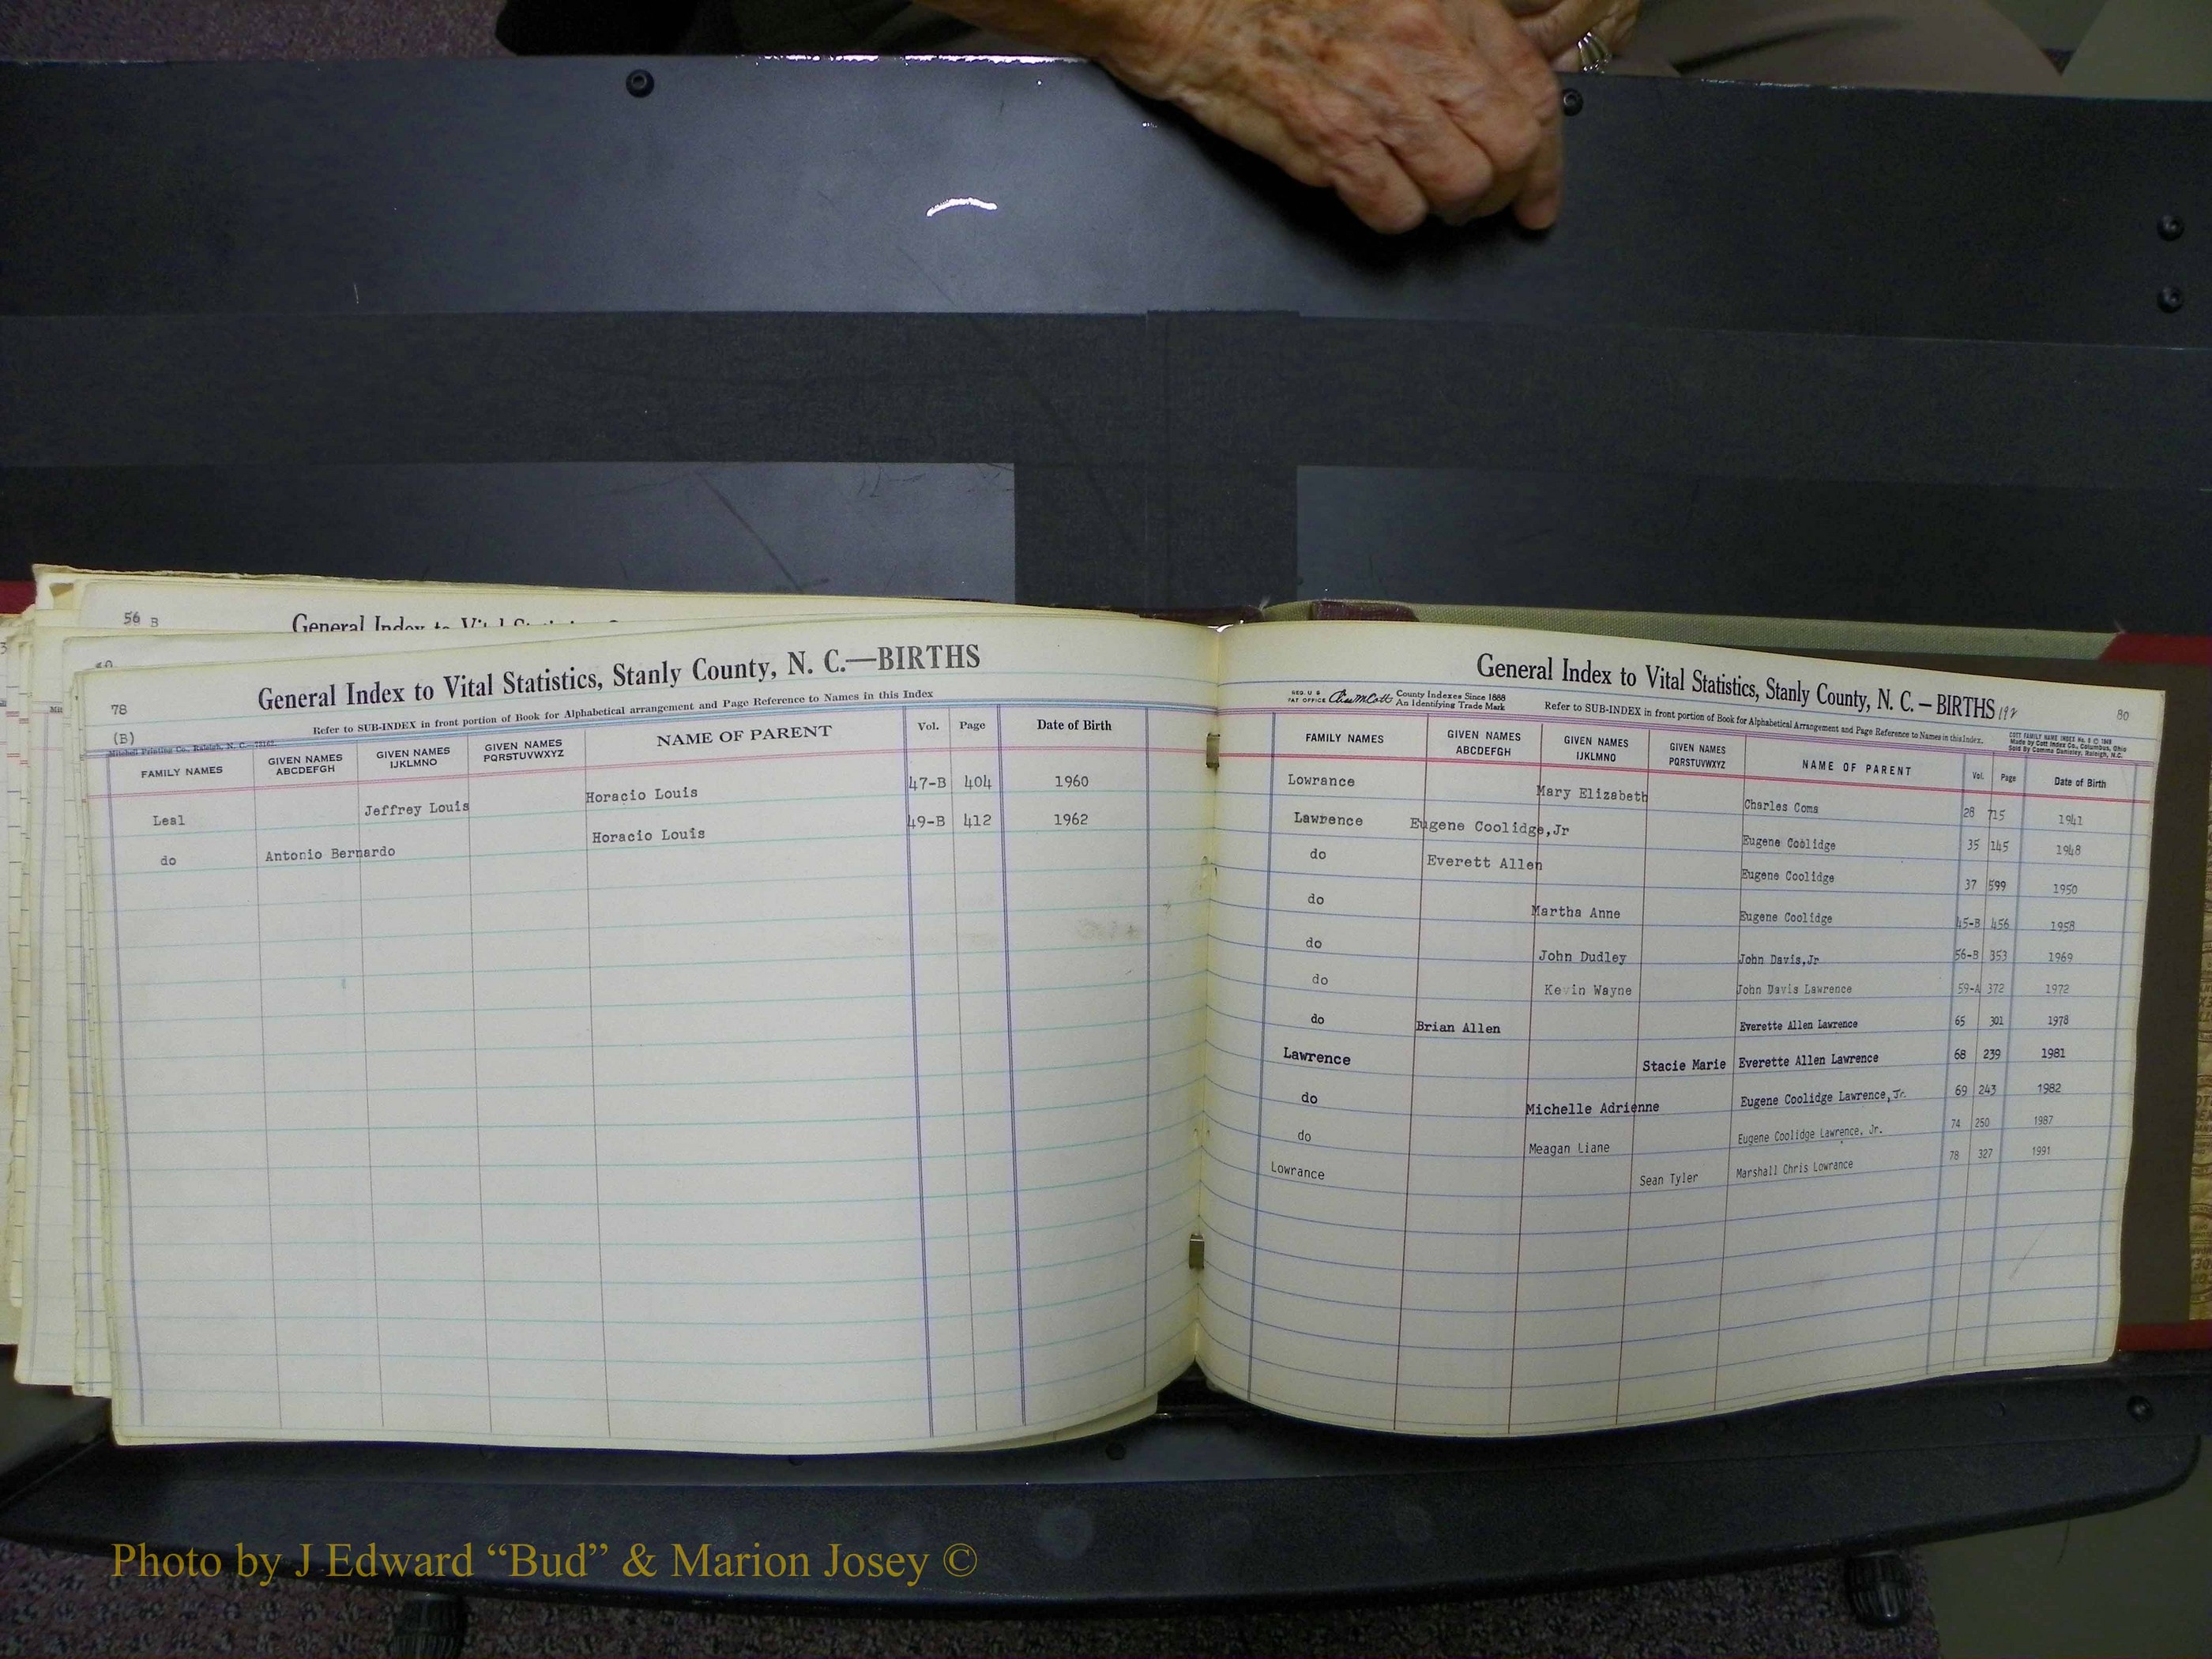 56 B
General Index to Vital Statistics
78
(B)
General Index to Vital Statistics, Stanly County, N. C.—BIRTHS
Refer to SUB-INDEX in front portion of Book for Alphabetical arrangement and Page Reference to Names in this Index
Mitchell Printing Co., Raleigh, N. C.
FAMILY NAMES GIVEN NAMES ABCDEFGH GIVEN NAMES IJKLMNO GIVEN NAMES PQRSTUVWXYZ NAME OF PARENT Vol. Page Date of Birth
Leal Jeffrey Louis Horacio Louis 47-B 404 1960
do Antonio Bernardo Horacio Louis 49-B 412 1962
General Index to Vital Statistics, Stanly County, N. C. – BIRTHS
80
REG. U S PAT OFFICE County Indexes Since 1888 An Identifying Trade Mark
Refer to SUB-INDEX in front portion of Book for Alphabetical Arrangement and Page Reference to Names in this Index.
COTT FAMILY NAME INDEX No. 5 © 1948
Made by Cott Index Co., Columbus, Ohio
Sold by Camma Dameley, Raleigh, N.C.
FAMILY NAMES GIVEN NAMES ABCDEFGH GIVEN NAMES IJKLMNO GIVEN NAMES PQRSTUVWXYZ NAME OF PARENT Vol. Page Date of Birth
Lowrance Mary Elizabeth Charles Coma 28 715 1941
Lawrence Eugene Coolidge,Jr Eugene Coolidge 35 145 1948
do Everett Allen Eugene Coolidge 37 599 1950
do Martha Anne Eugene Coolidge 45-B 456 1958
do John Dudley John Davis,Jr 56-B 353 1969
do Kevin Wayne John Davis Lawrence 59-A 372 1972
do Brian Allen Everette Allen Lawrence 65 301 1978
Lawrence Stacie Marie Everette Allen Lawrence 68 239 1981
do Michelle Adrienne Eugene Coolidge Lawrence, Jr. 69 243 1982
do Meagan Liane Eugene Coolidge Lawrence, Jr. 74 250 1987
Lowrance Sean Tyler Marshall Chris Lowrance 78 327 1991
Photo by J Edward “Bud” & Marion Josey ©